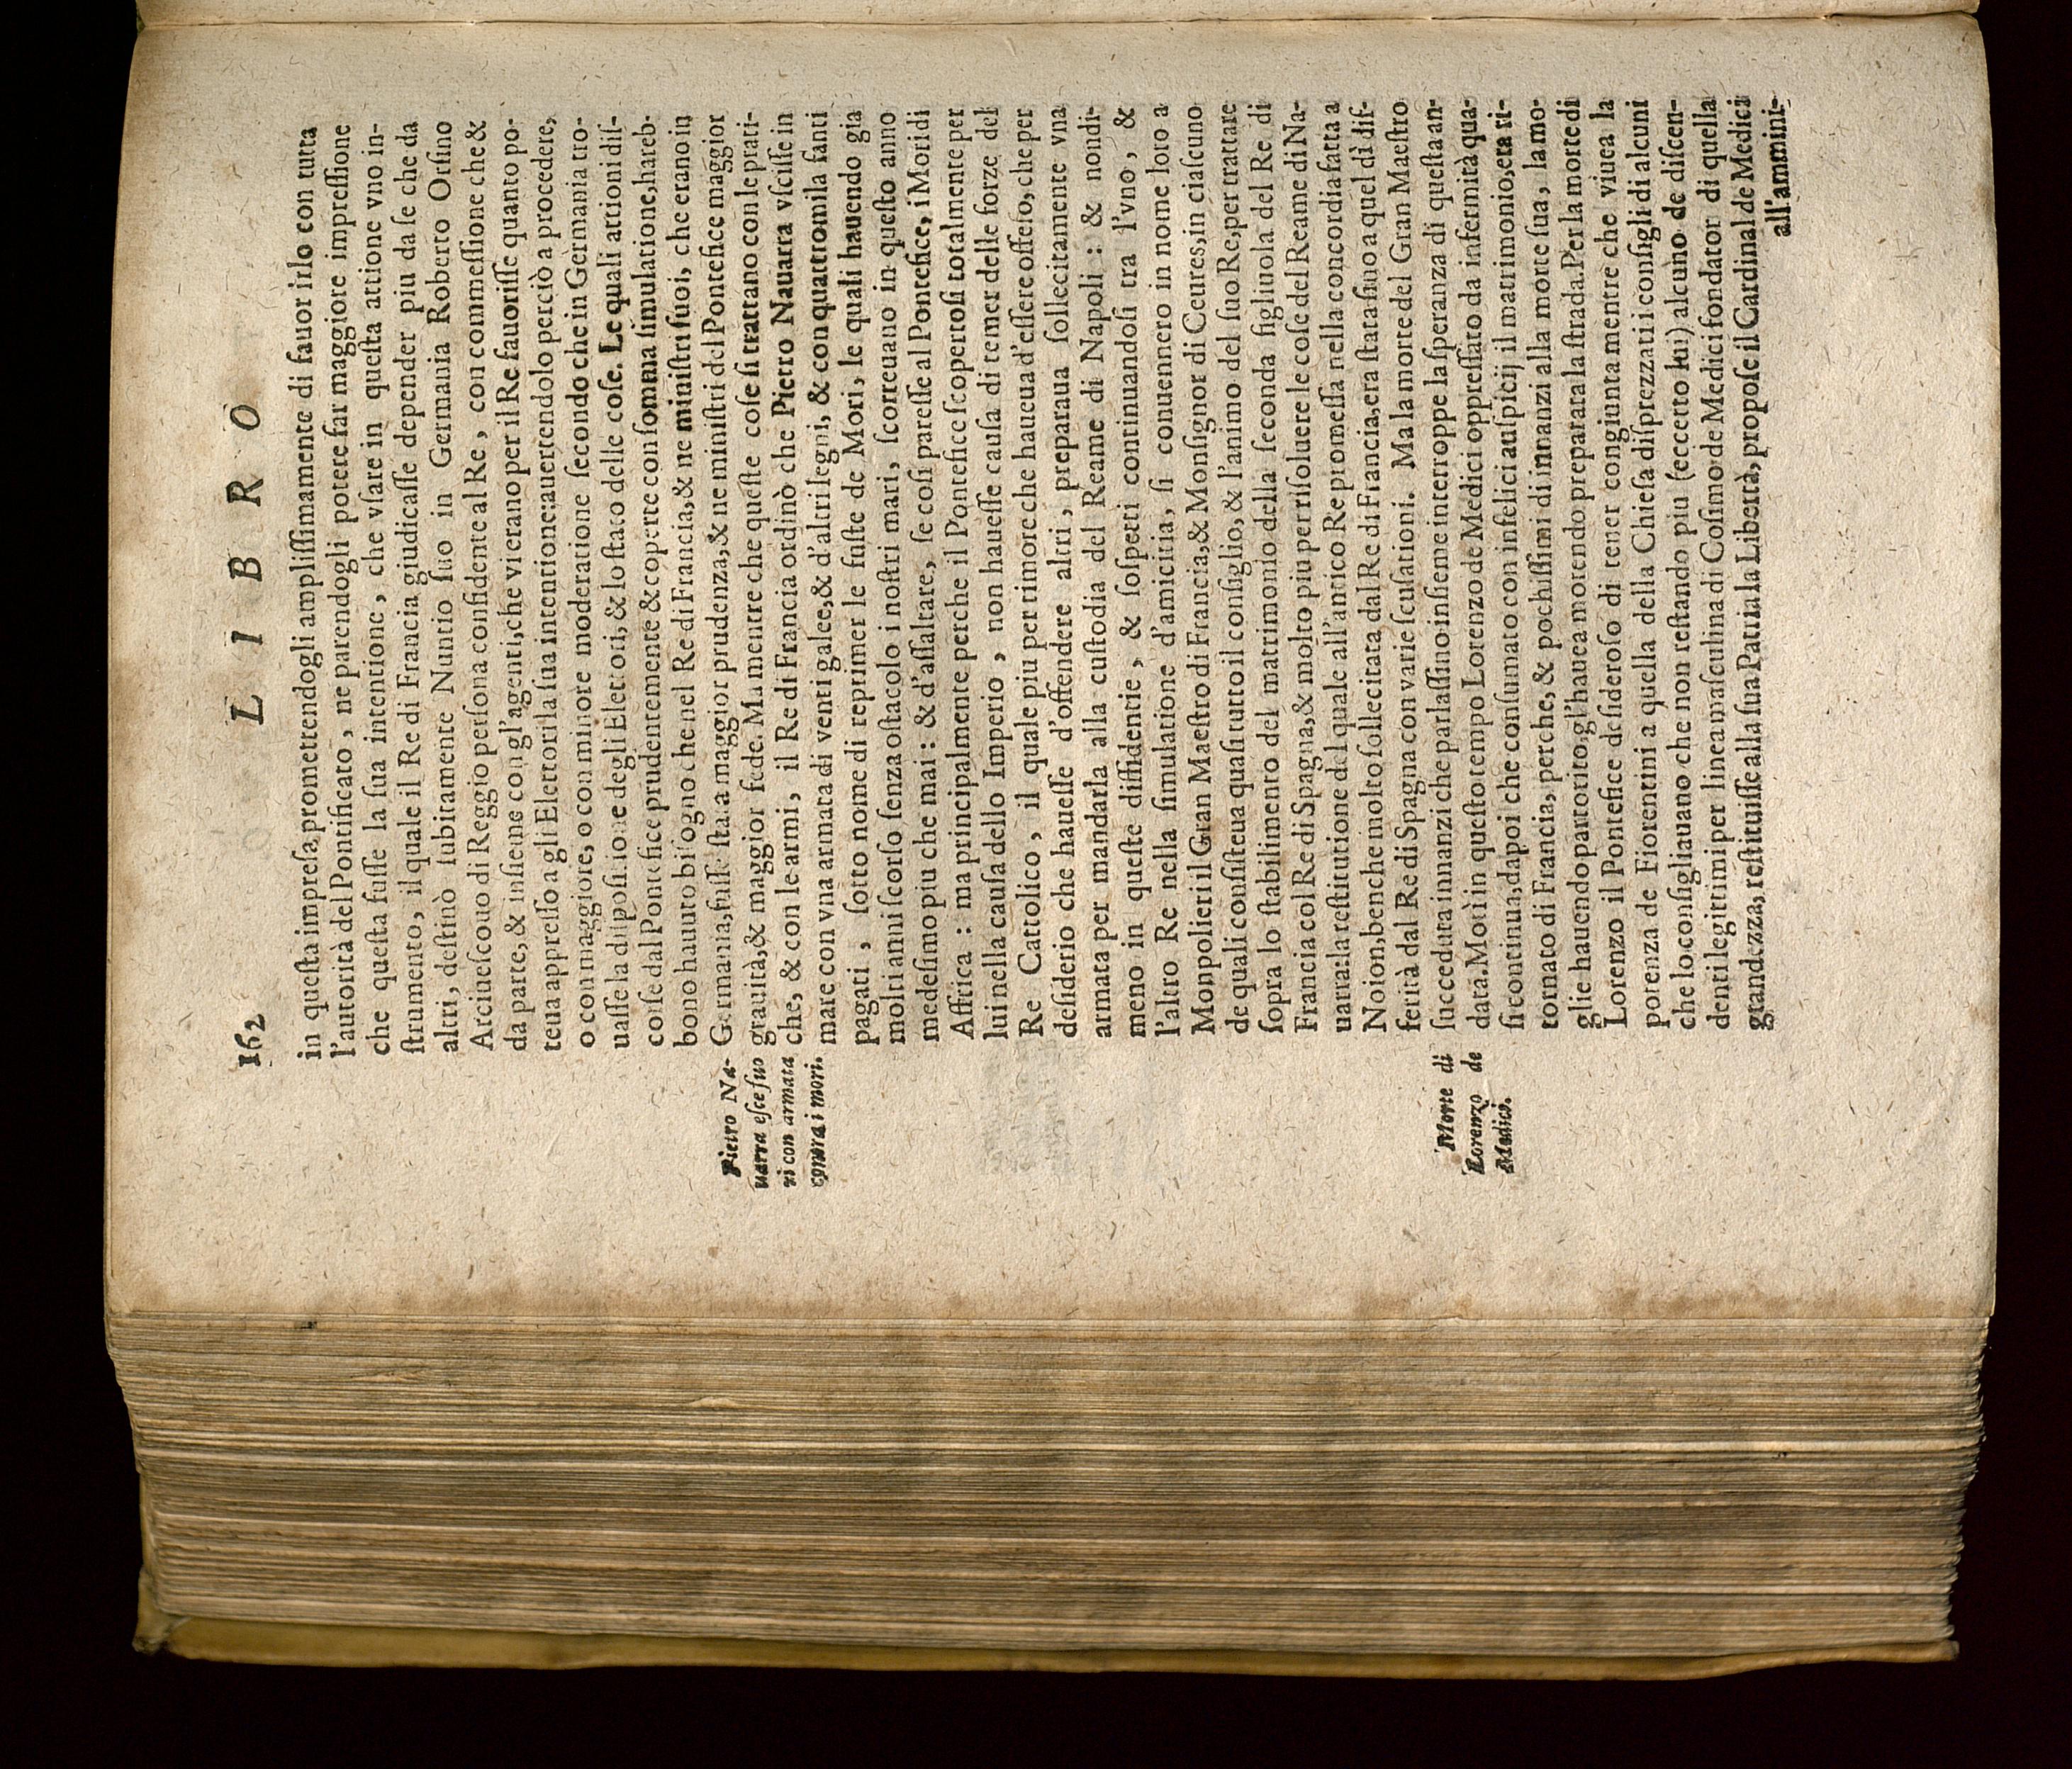 162
L I B R O
in queſta impreſa, promettendogli ampliſſimamente di fauorirlo con tutta
l'autorità del Pontificato, ne parendogli potere far maggiore impreſſione
che queſta fuſſe la ſua intentione, che vſare in queſta attione vno in-
ſtrumento, il quale il Re di Francia giudicaſſe depender piu da ſe che da
altri, deſtinò ſubitamente Nuntio ſuo in Germania Roberto Orſino
Arciueſcouo di Reggio perſona confidente al Re, con commeſſione che &
da parte, & inſieme con gl'agenti, che vi erano per il Re fauoriſſe quanto po-
teua appreſſo a gli Elettori la ſua intentione: auertendolo perciò a procedere,
o con maggiore, o con minore moderatione ſecondo che in Germania tro-
uaſſe la diſpoſitione degli Elettori, & lo ſtato delle coſe. Le quali attioni diſ-
corſe dal Pontefice prudentemente & coperte con ſomma ſimulatione, hareb-
bono hauuto biſogno che nel Re di Francia, & ne miniſtri ſuoi, che erano in
Germania, fuſſe ſtata maggior prudenza, & ne miniſtri del Pontefice maggior
grauità, & maggior fede. Ma mentre che queſte coſe ſi trattano con le prati-
che, & con le armi, il Re di Francia ordinò che Pietro Nauarra vſciſſe in
mare con vna armata di venti galee, & d'altri legni, & con quattromila fanti
pagati, ſotto nome di reprimer le fuſte de Mori, le quali hauendo gia
molti anni ſcorſo ſenza oſtacolo i noſtri mari, ſcorreuano in queſto anno
medeſimo piu che mai: & d'aſſaltare, ſe coſi pareſſe al Pontefice, i Mori di
Affrica: ma principalmente perche il Pontefice ſcopertoſi totalmente per
lui nella cauſa dello Imperio, non haueſſe cauſa di temer delle forze del
Re Cattolico, il quale piu per timore che haueua d'eſſere offeſo, che per
deſiderio che haueſſe d'offendere altri, preparaua ſollecitamente vna
armata per mandarla alla cuſtodia del Reame di Napoli: & nondi-
meno in queſte diffidentie, & ſoſpetti continuandoſi tra l'vno, &
l'altro Re nella ſimulatione d'amicitia, ſi conuennero in nome loro a
Monpolieri il Gran Maeſtro di Francia, & Monſignor di Ceures, in ciaſcuno
de quali conſiſteua quaſi tutto il conſiglio, & l'animo del ſuo Re, per trattare
ſopra lo ſtabilimento del matrimonio della ſeconda figliuola del Re di
Francia col Re di Spagna, & molto piu per riſoluere le coſe del Reame di Na-
uarra: la reſtitutione del quale all'antico Re promeſſa nella concordia fatta a
Noion, benche molto ſollecitata dal Re di Francia, era ſtata ſino a quel dì diſ-
ferità dal Re di Spagna con varie ſcuſationi. Ma la morte del Gran Maeſtro
ſucceduta innanzi che parlaſſino inſieme interroppe la ſperanza di queſta an-
data. Morì in queſto tempo Lorenzo de Medici oppreſſato da infermità qua-
ſi continua, dapoi che conſumato con infelici auſpicij il matrimonio, era ri-
tornato di Francia, perche, & pochiſſimi dì innanzi alla morte ſua, la mo-
glie hauendo partorito, gl'hauea morendo preparata la ſtrada. Per la morte di
Lorenzo il Pontefice deſideroſo di tener congiunta mentre che viuea la
potenza de Fiorentini a quella della Chieſa diſprezzati i conſigli di alcuni
che lo conſigliauano che non reſtando piu (eccetto lui) alcuno de diſcen-
denti legittimi per linea maſculina di Coſimo de Medici fondator di quella
grandezza, reſtituiſſe alla ſua Patria la Libertà, propoſe il Cardinal de Medici
all'ammini-
Pietro Na-
uarra eſce fuo
ri con armata
contra i mori.
Morte di
Lorenzo de
Medici.